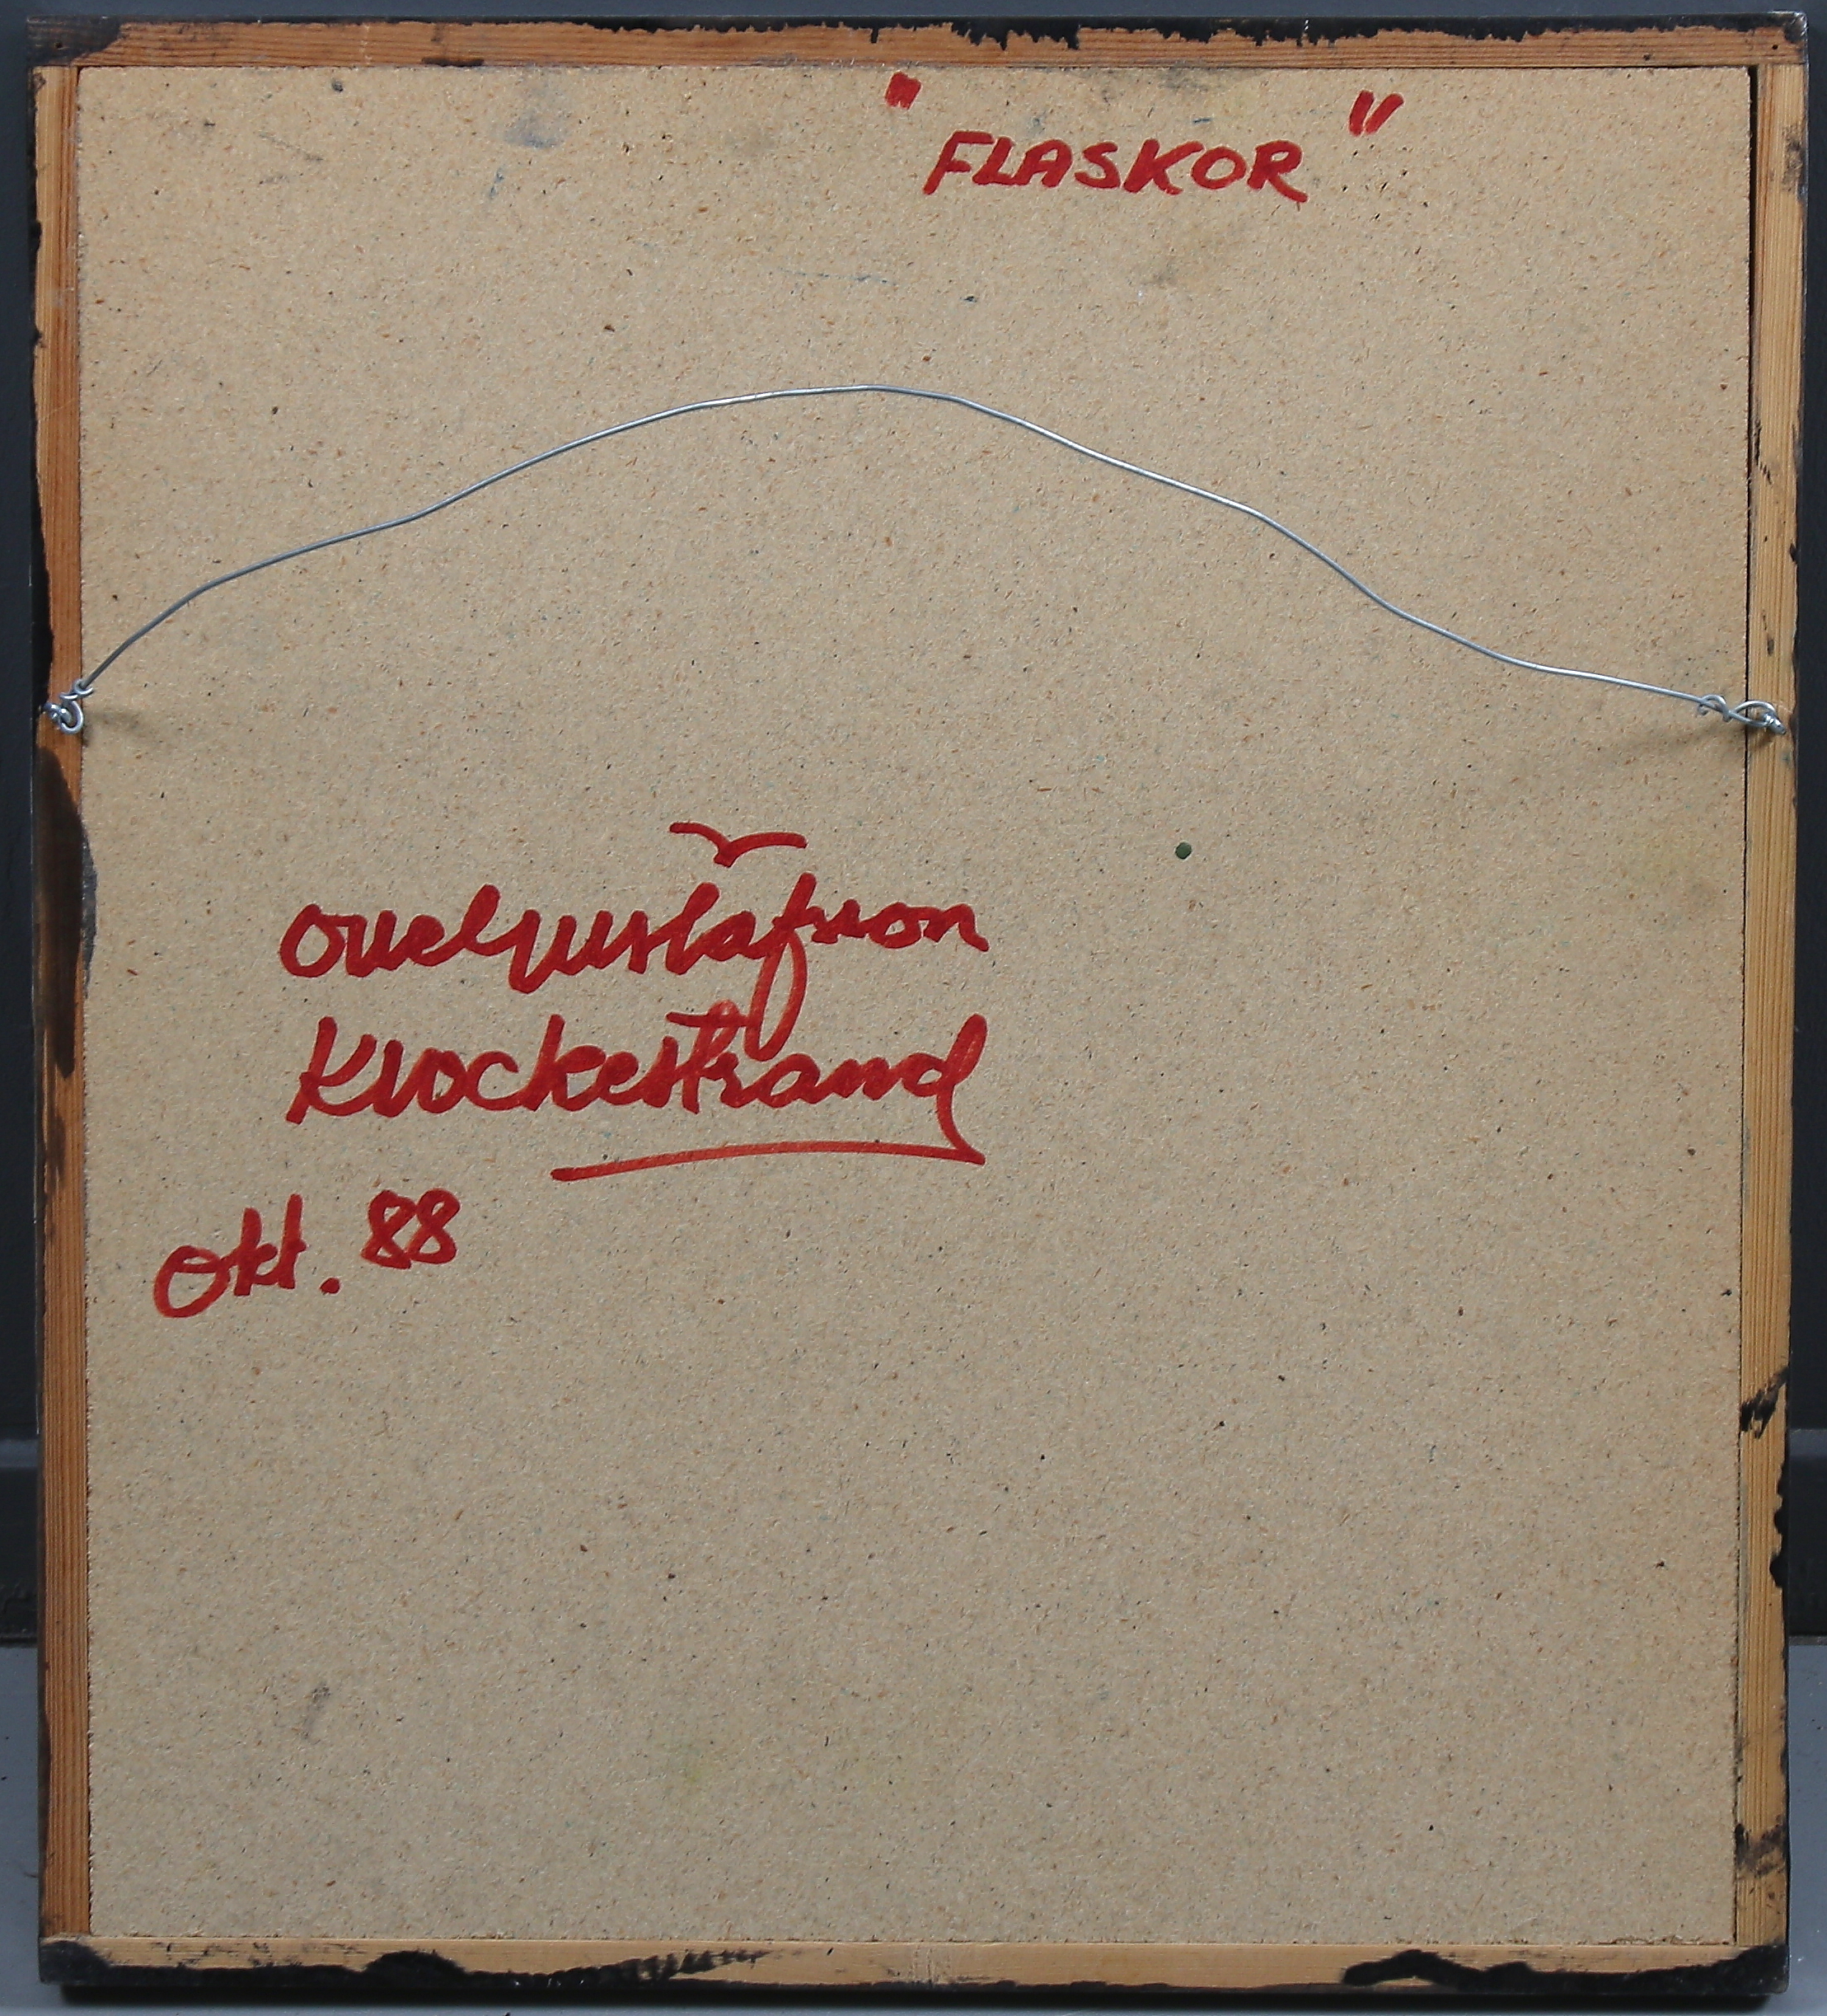 "FLASKOR"
Ove Gustafsson
Klockestrand
Okt. 88